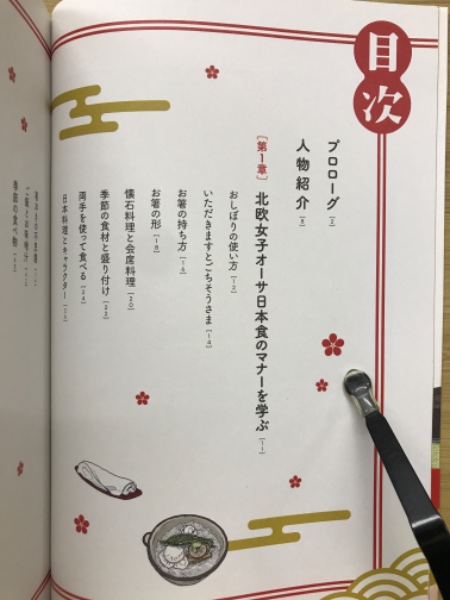 目次
プロローグ [2]
人物紹介 [8]
[第1章] 北欧女子オーサ日本食のマナーを学ぶ [11]
おしぼりの使い方 [12]
いただきますとごちそうさま [14]
お箸の持ち方 [16]
お箸の形 [18]
懐石料理と会席料理 [20]
季節の食材と盛り付け [22]
両手を使って食べる [24]
日本料理とキャラクター
ご飯とお味噌汁
季節の食べ物